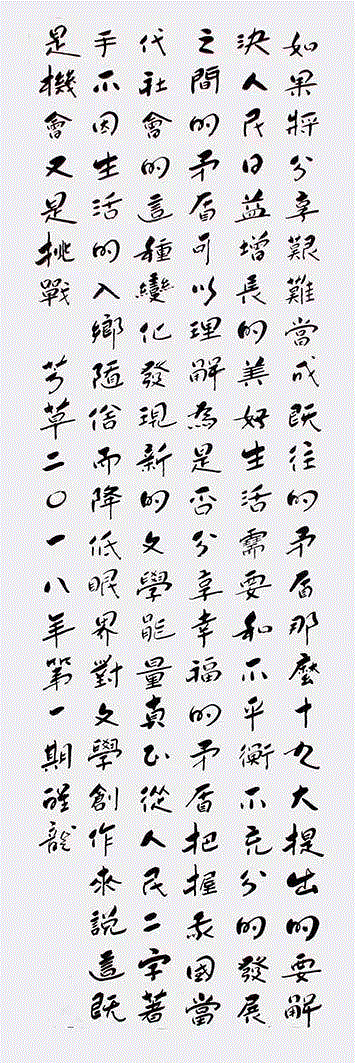 如果將分享艱難當成既往的矛盾那麼十九大提出的要解
決人民日益增長的美好生活需要和不平衡不充分的發展
之間的矛盾可以理解為是否分享幸福的矛盾把握我國當
代社會的這種變化發現新的文學能量真正從人民二字著
手不因生活的入鄉隨俗而降低眼界對文學創作來說這既
是機會又是挑戰 芳草二〇一八年第一期 醒龍